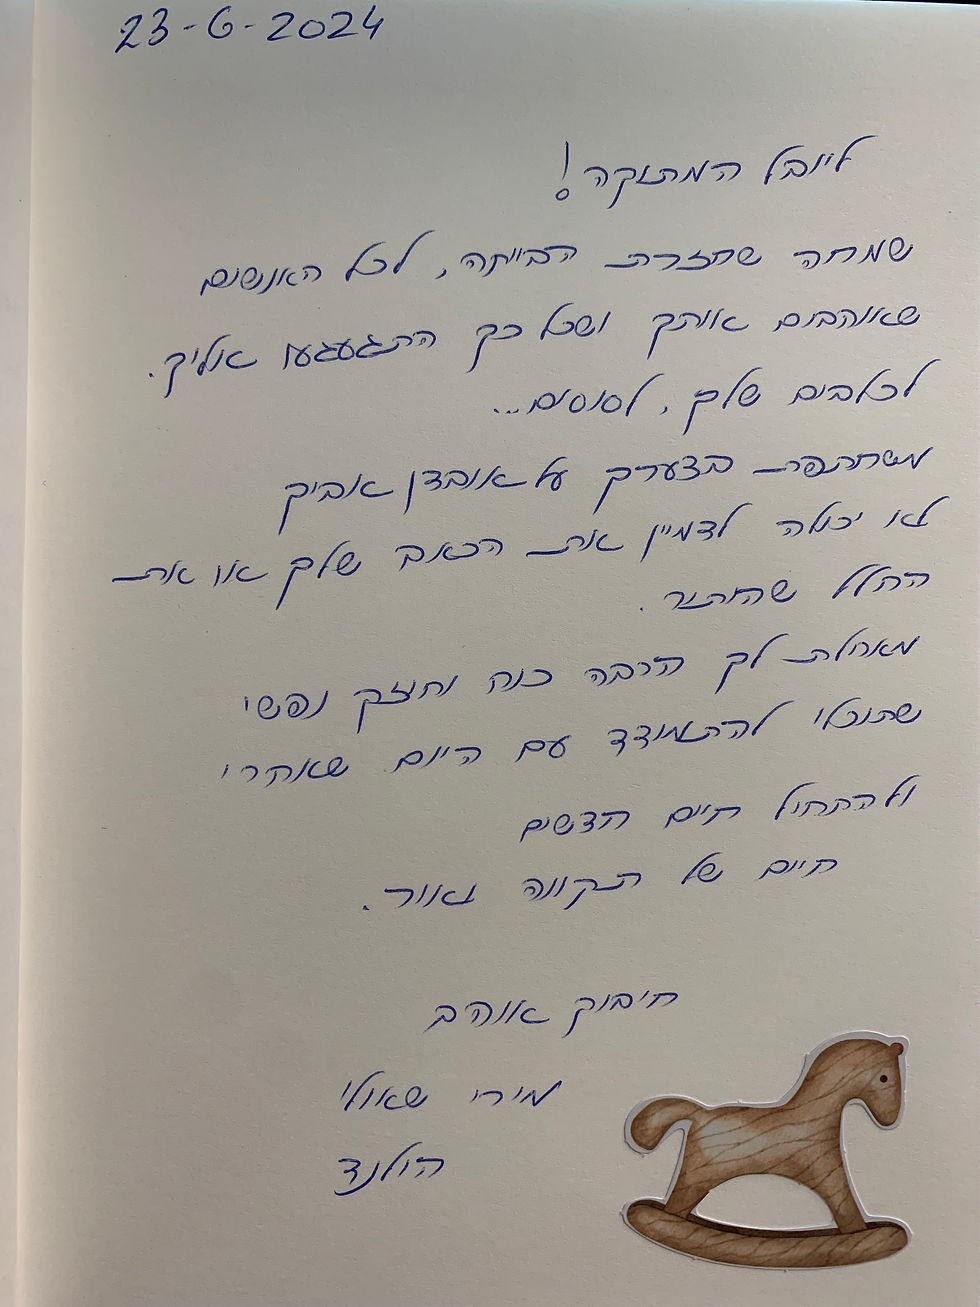 23-6-2024
ליובל המתוקה!
שמחה שחזרת הביתה, לכל האנשים
שאוהבים אותך ושכל כך התגעגעו אליך.
לכלבים שלך, לסוסים...
משתתפת בצערך על אובדן אביך
לא יכולה לדמיין את הכאב שלך או את
החלל שהותיר.
מאחלת לך הרבה כוח וחוזק נפשי
שתוכלי להתמודד עם היום שאחרי
ולהתחיל חיים חדשים
חיים של תקווה ואור.
חיבוק אוהב
מירי שאולי
הולנד